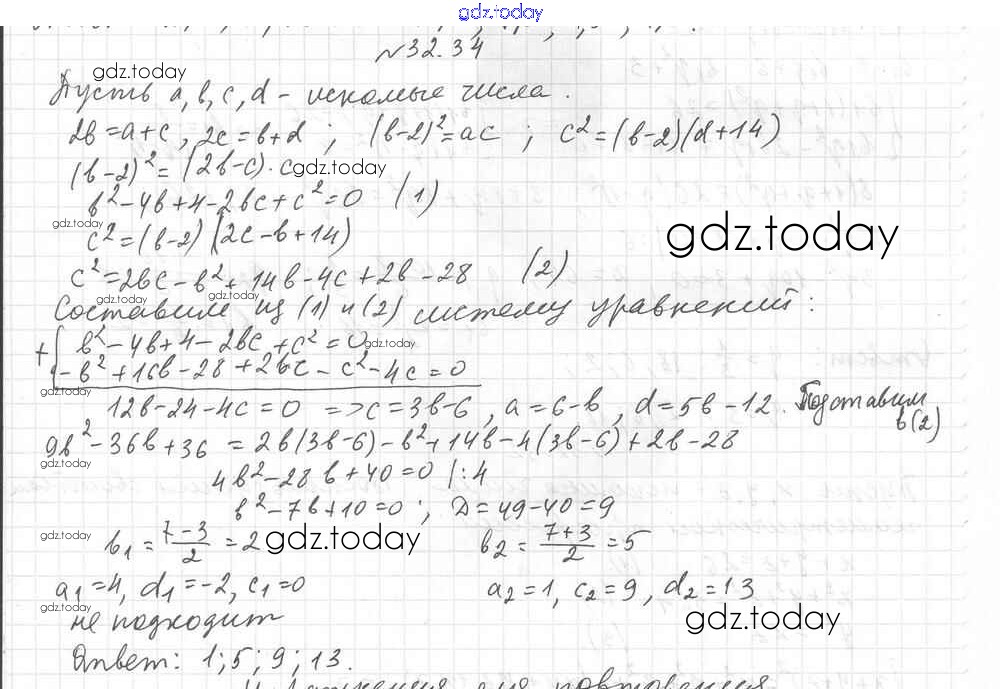 gdz.today
№32.34
gdz.today
Пусть a, b, c, d - искомые числа.
2b=a+c, 2c=b+d ; (b-2)²=ac ; c²=(b-2)(d+14)
(b-2)²=(2b-c)·c gdz.today
b²-4b+4-2bc+c²=0 (1)
gdz.today c²=(b-2)(2c-b+14) gdz.today
c²=2bc-b²+14b-4c+2b-28 (2)
gdz.today gdz.today
Составим из (1) и (2) систему уравнений:
+{ b²-4b+4-2bc+c²=0 gdz.today
-b²+16b-28+2bc-c²-4c=0
gdz.today
12b-24-4c=0 => c=3b-6, a=6-b, d=5b-12. Подставим
в(2)
9b²-36b+36=2b(3b-6)-b²+14b-4(3b-6)+2b-28
gdz.today
4b²-28b+40=0 |:4
b²-7b+10=0; D=49-40=9
gdz.today b₁=(7-3)/2=2 gdz.today b₂=(7+3)/2=5
a₁=4, d₁=-2, c₁=0 a₂=1, c₂=9, d₂=13
gdz.today gdz.today
не подходит
Ответ: 1; 5; 9; 13.